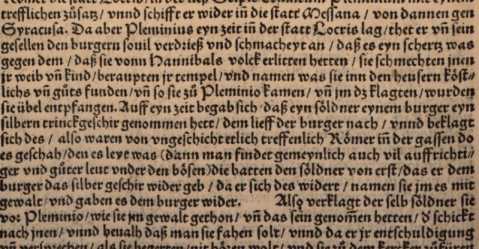 trefflichen zůsatz / vnnd schifft er wider in die statt Messana / von dannen gen
Syracusa. Da aber Pleminius eyn zeit in der statt Locris lag / thet er vñ sein
gesellen den burgern souil verdrieß vnd schmacheyt an / daß es eyn schertz was
gegen dem / daß sie vonn Hannibals volck erlitten hetten / sie schmechten jnen
jr weib vñ kind / beraupten jr tempel / vnd namen was sie inn den heusern köst⸗
lichs vñ gůts funden / vñ so sie zů Pleminio kamen / vñ jm dz klagten / wurden
sie übel entpfangen. Auff eyn zeit begab sich / daß eyn söldner eynem burger eyn
silbern trinckgeschir genommen hett / dem lieff der burger nach / vnnd beklagt
sich des / also waren von vngeschicht etlich treffenlich Römer in der gassen do
es geschah / den es leyt was (dann man findet gemeynlich auch vil auffrichti⸗
ger vnd gůter leut vnder den bösen) die batten den söldner von erst / das er dem
burger das silber geschir wider geb / da er sich des widert / namen sie jm es mit
gewalt / vnd gaben es dem burger wider. Also verklagt der selb söldner sie
vor Pleminio / wie sie jm gewalt gethon / vñ das sein genom̃en hetten / d schickt
nach jnen / vnnd beualh daß man sie fahen solt / vnnd da er jr entschuldigung